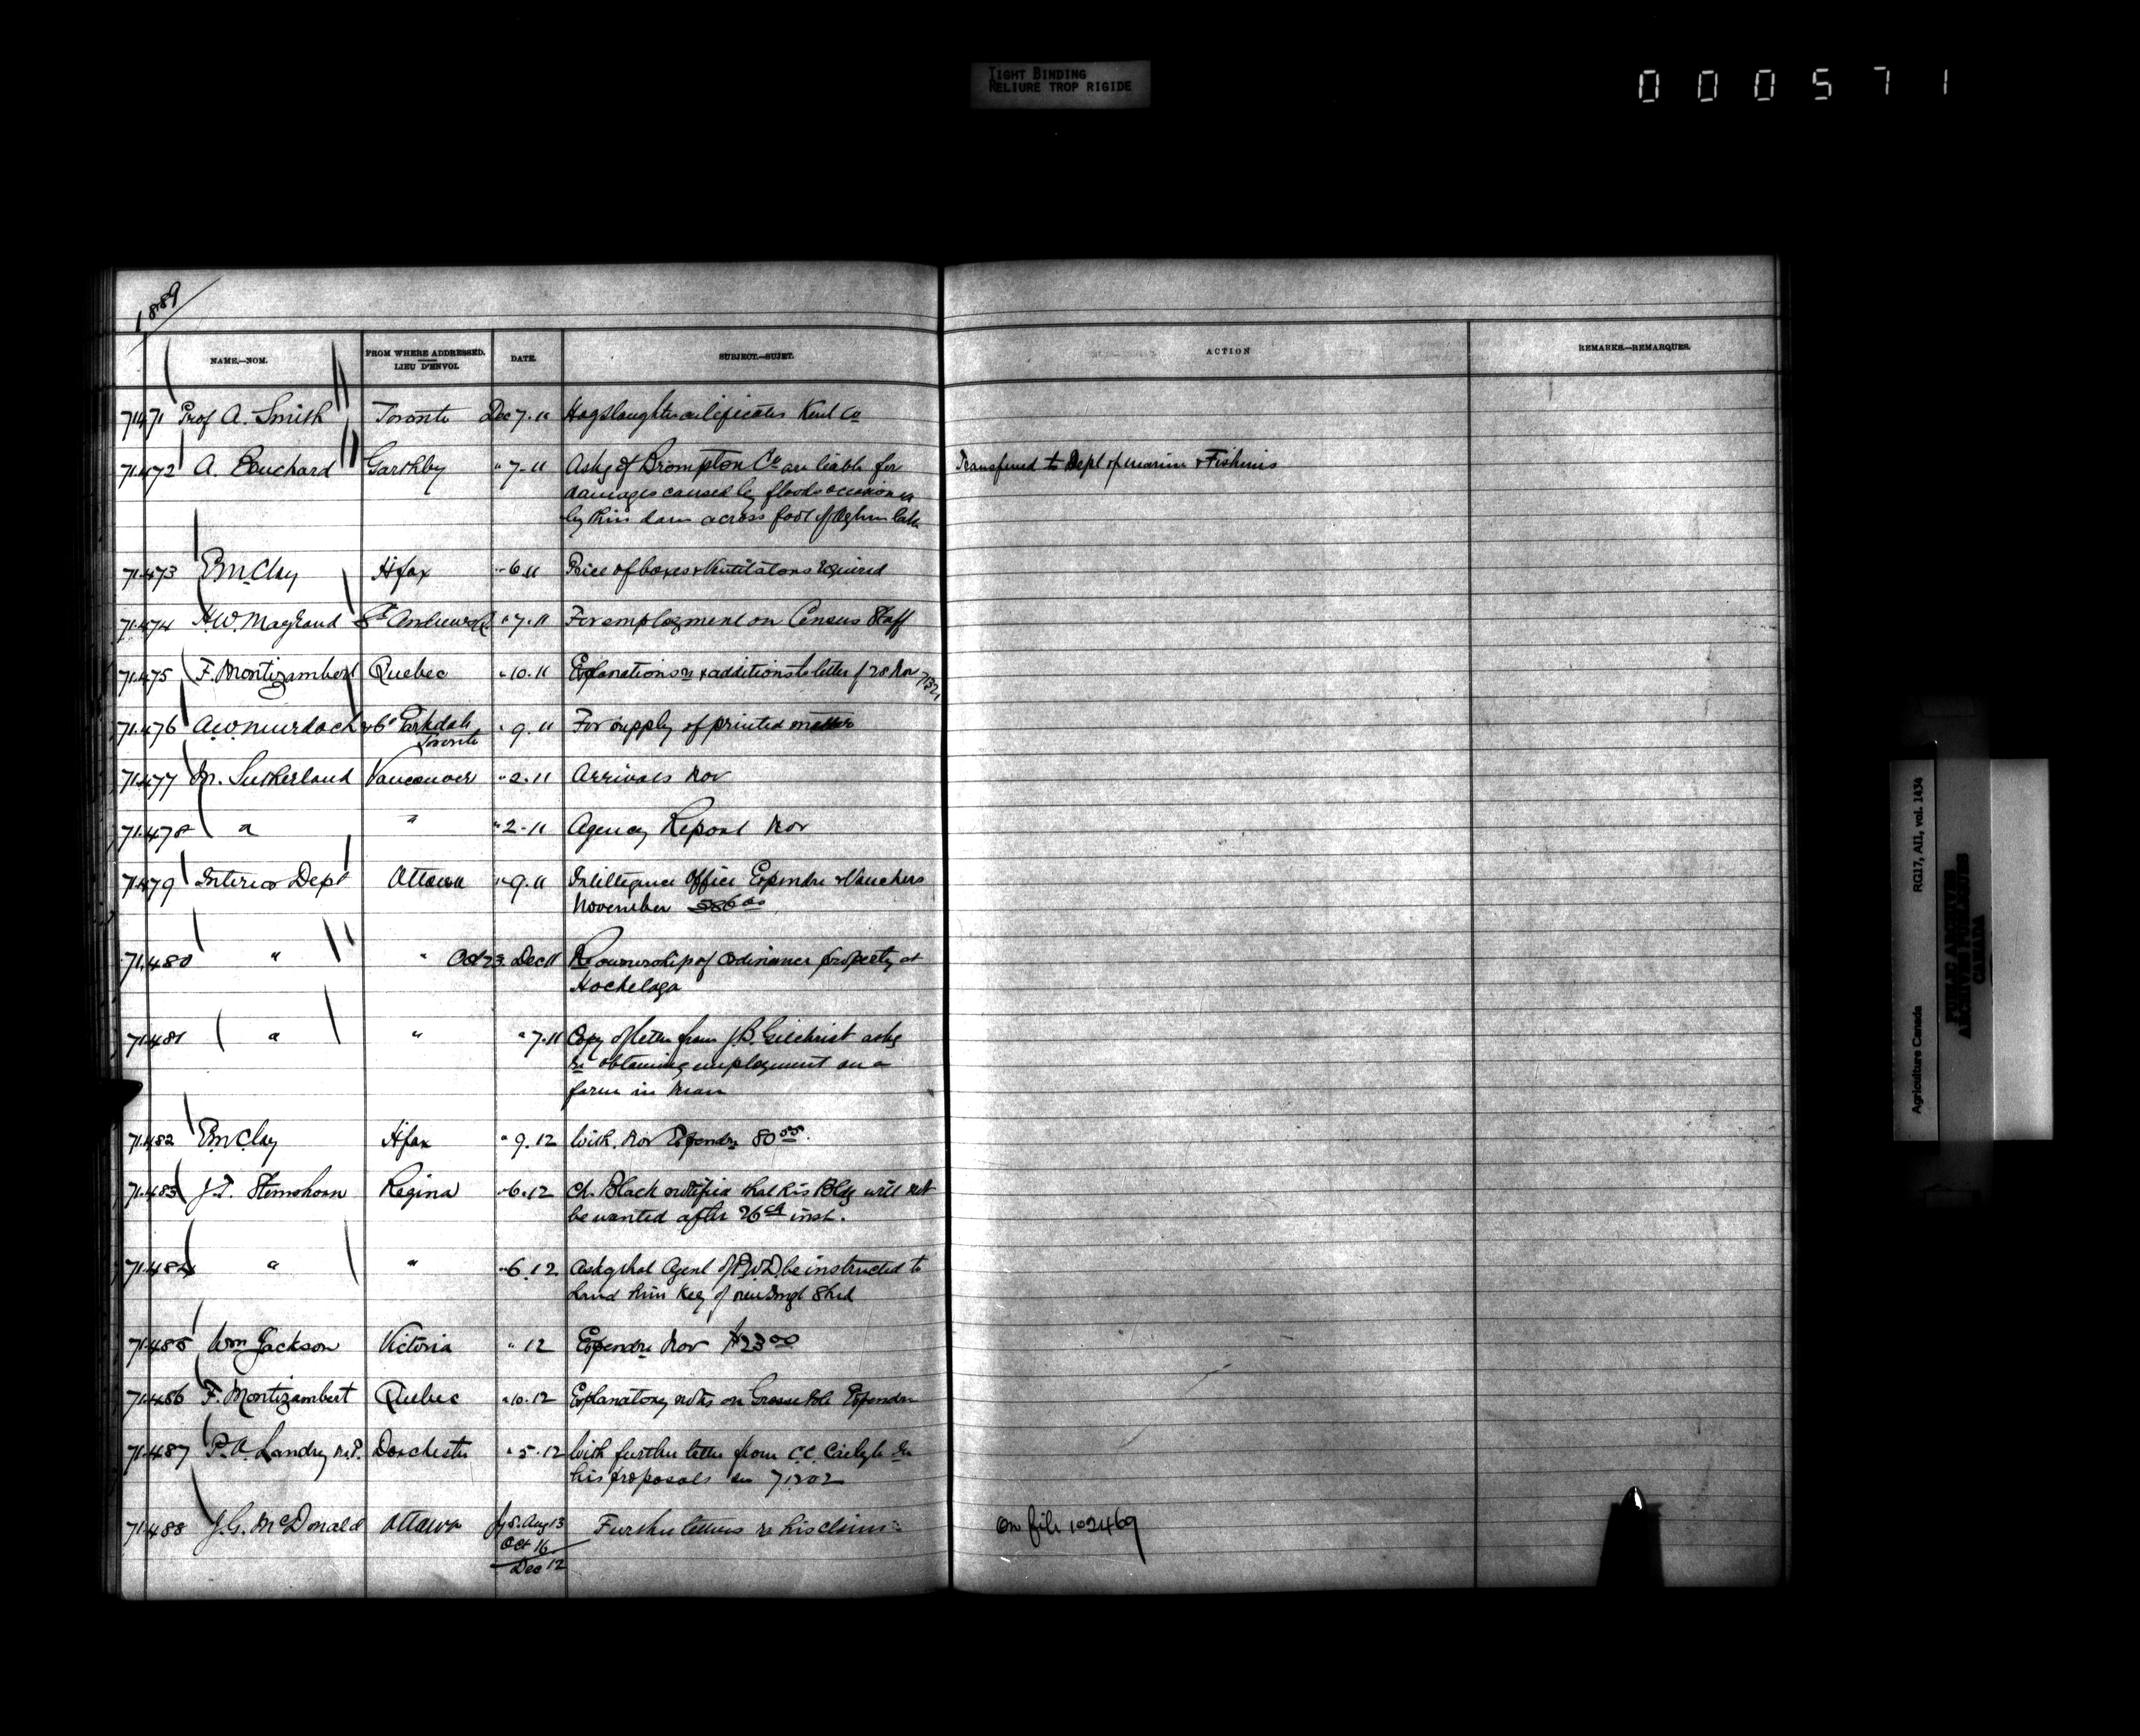 TIGHT BINDING
RELIURE TROP RIGIDE
000571
1889
NAME.—NOM. FROM WHERE ADDRESSED. LIEU D'ENVOI. DATE. SUBJECT.—SUJET. ACTION REMARKS.—REMARQUES.
71471 Prof A. Smith Toronto Dec 7.11 Hog Slaughter certificates Kent Co
71472 A. Bouchard Garthby " 7-11 Askg if Brompton Co are liable for Transferred to Dept of Marine & Fisheries
damages caused by floods
by their dam across foot of Lake
71473 E McClay Hfax " 6.11 Price of boxes & Ventilators required
71474 H.W. St Andrews " 7.11 For employment on Census Staff
71475 F. Montizambert Quebec " 10.11 Explanations & additions to letter of 28 Nov
71476 A.W. Murdoch Parkdale " 9.11 For supply of printed matter
Toronto
71477 M. Sutherland Vancouver " 2.11 Arrivals Nov
71478 " " " 2-11 Agency Report Nov
71479 Interior Dept Ottawa " 9.11 Intelligence Office Expendre & Vouchers
November
71480 " " Oct 23. Dec 11 Re ownership of Ordinance property at
Hochelaga
71481 " " " 7.11 Copy of letter from J.B. Gilchrist askg
re obtaining employment on a
farm in Man
71482 E McClay Hfax " 9.12 With Nov Expendre 80 55
71483 J.T. Stemshorn Regina " 6.12 Ch. Black notified that his Bldg will not
be wanted after 26th inst.
71484 " " " 6.12 Askg that Agent of P.W.D. be instructed to
hand him key of new Imgt Shed
71485 Wm Jackson Victoria " 12 Expendre Nov $23 00
71486 F. Montizambert Quebec " 10.12 Explanatory notes on Grosse Isle Expendre
71487 P.A. Landry M.P. Dorchester " 5.12 With further letter from C.C. Carlyle re
his proposals see 71202
71488 J.G. McDonald Ottawa Jy 8. Aug 13 Further letters re his claims On file 102469
Oct 16
Dec 12
Agriculture Canada RG17, AII, vol. 1434
PUBLIC ARCHIVES
ARCHIVES PUBLIQUES
CANADA